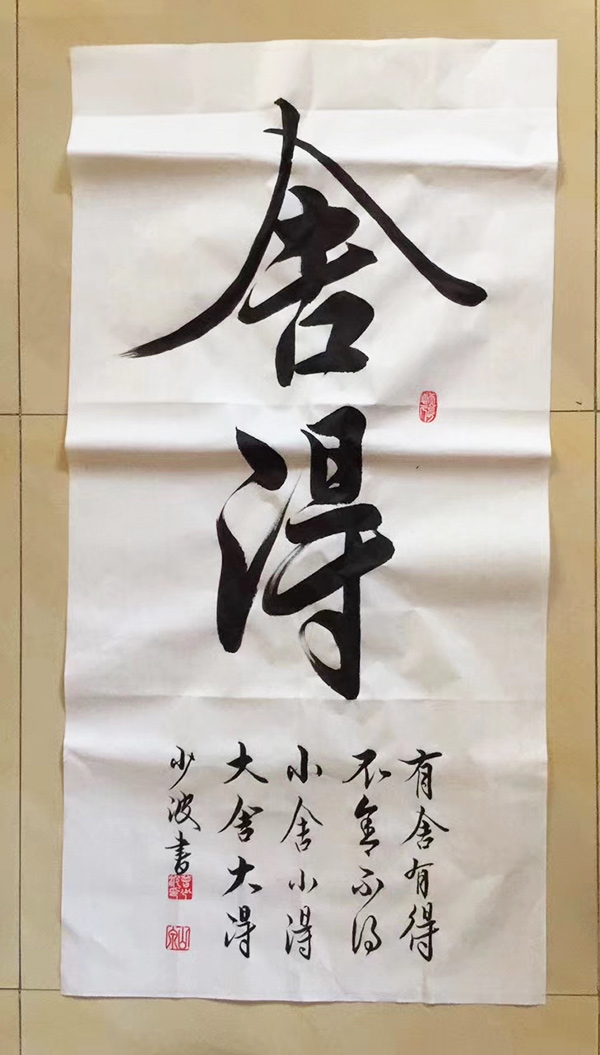 舍得
有舍有得
不舍不得
小舍小得
大舍大得
少波书